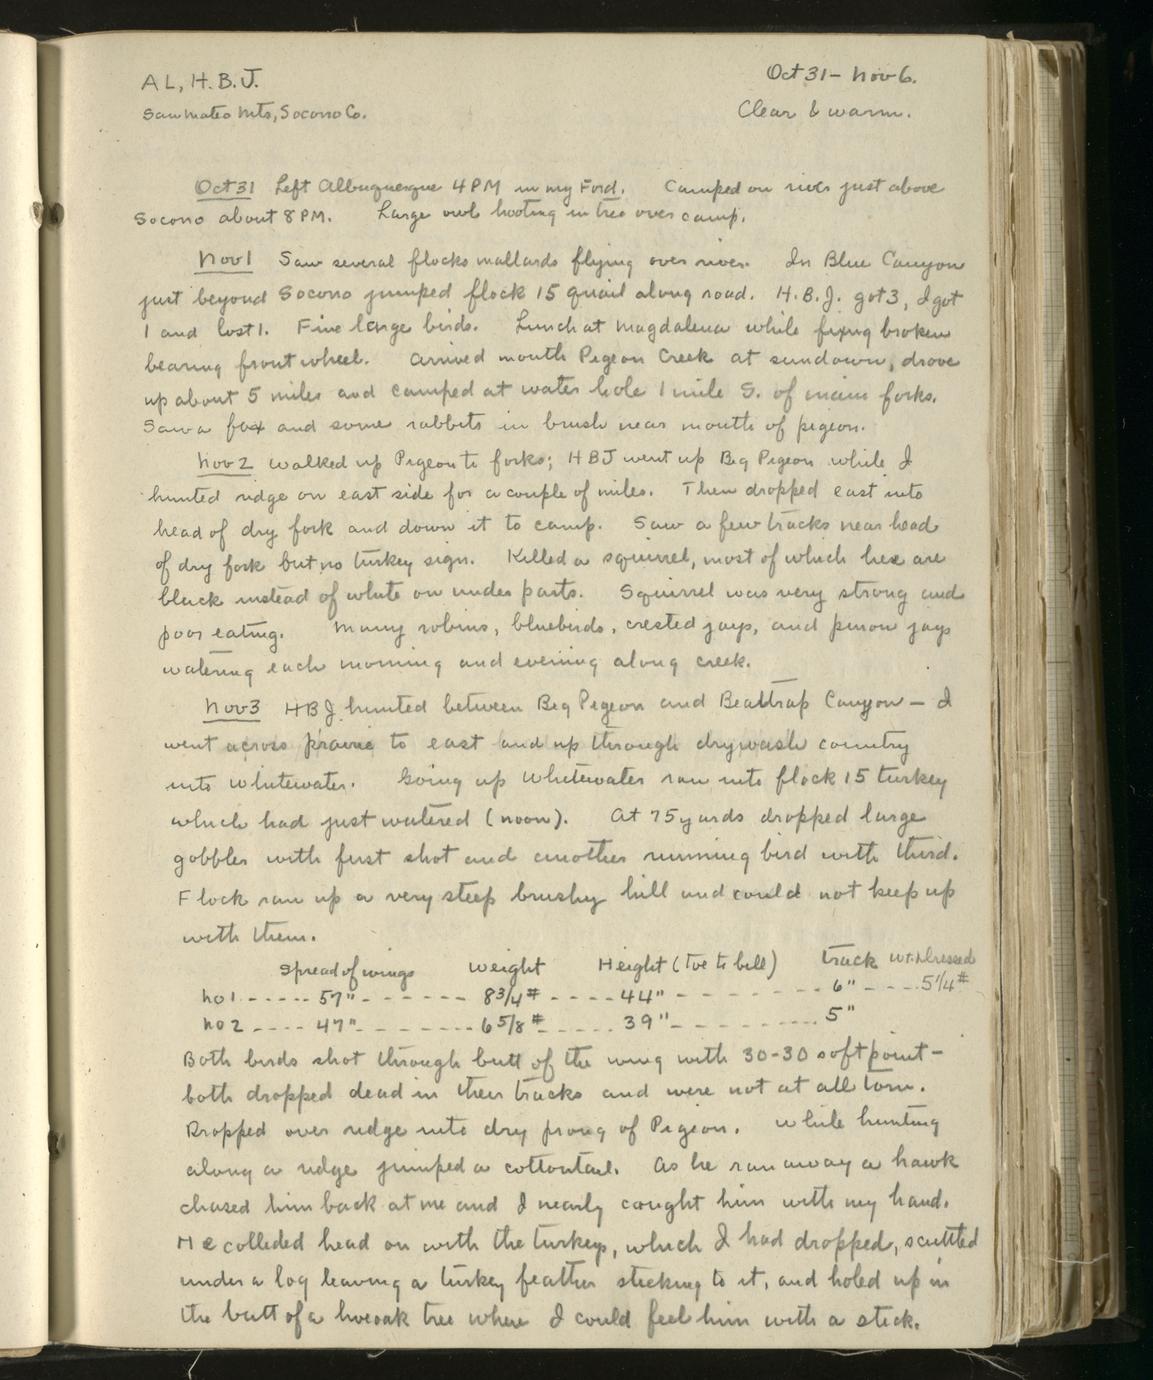 AL, H.B.J.
Oct 31 - Nov 6.
San Mateo Mts, Socorro Co.
Clear & warm.
Oct 31 Left Albuquerque 4 PM in my Ford. Camped on river just above
Socorro about 8 PM. Large owl hooting in tree over camp.
Nov 1 Saw several flocks mallards flying over river. In Blue Canyon
just beyond Socorro jumped flock 15 quail along road. H.B.J. got 3, I got
1 and lost 1. Fine large birds. Lunch at Magdalena while fixing broken
bearing front wheel. Arrived mouth Pigeon Creek at sundown, drove
up about 5 miles and camped at water hole 1 mile S. of main forks.
Saw a fox and some rabbits in brush near mouth of pigeon.
Nov 2 Walked up Pigeon to forks; HBJ went up Big Pigeon while I
hunted ridge on east side for a couple of miles. Then dropped east into
head of dry fork and down it to camp. Saw a few tracks near head
of dry fork but no turkey sign. Killed a squirrel, most of which here are
black instead of white on under parts. Squirrel was very strong and
poor eating. Many robins, bluebirds, crested jays, and pinon jays
watering each morning and evening along creek.
Nov 3 HBJ hunted between Big Pigeon and Beartrap Canyon — I
went across prairie to east and up through drywash country
into whitewater. Going up Whitewater ran into flock 15 turkey
which had just watered (noon). At 75 yards dropped large
gobbler with first shot and another running bird with third.
Flock ran up a very steep brushy hill and could not keep up
with them.
Spread of wings weight Height (Toe to bill) track Wt. Dressed
No 1 ----- 57" ------- 8 3/4# ---- 44" -------- 6" ---- 5 1/4#
No 2 ---- 47" -------- 6 5/8# ----- 39" --------- 5"
Both birds shot through butt of the wing with 30-30 soft point -
both dropped dead in their tracks and were not at all torn.
Dropped over ridge into dry prong of Pigeon. While hunting
along a ridge jumped a cottontail. As he ran away a hawk
chased him back at me and I nearly caught him with my hand.
He collided head on with the turkeys, which I had dropped, scuttled
under a log leaving a turkey feather sticking to it, and holed up in
the butt of a liveoak tree where I could feel him with a stick.